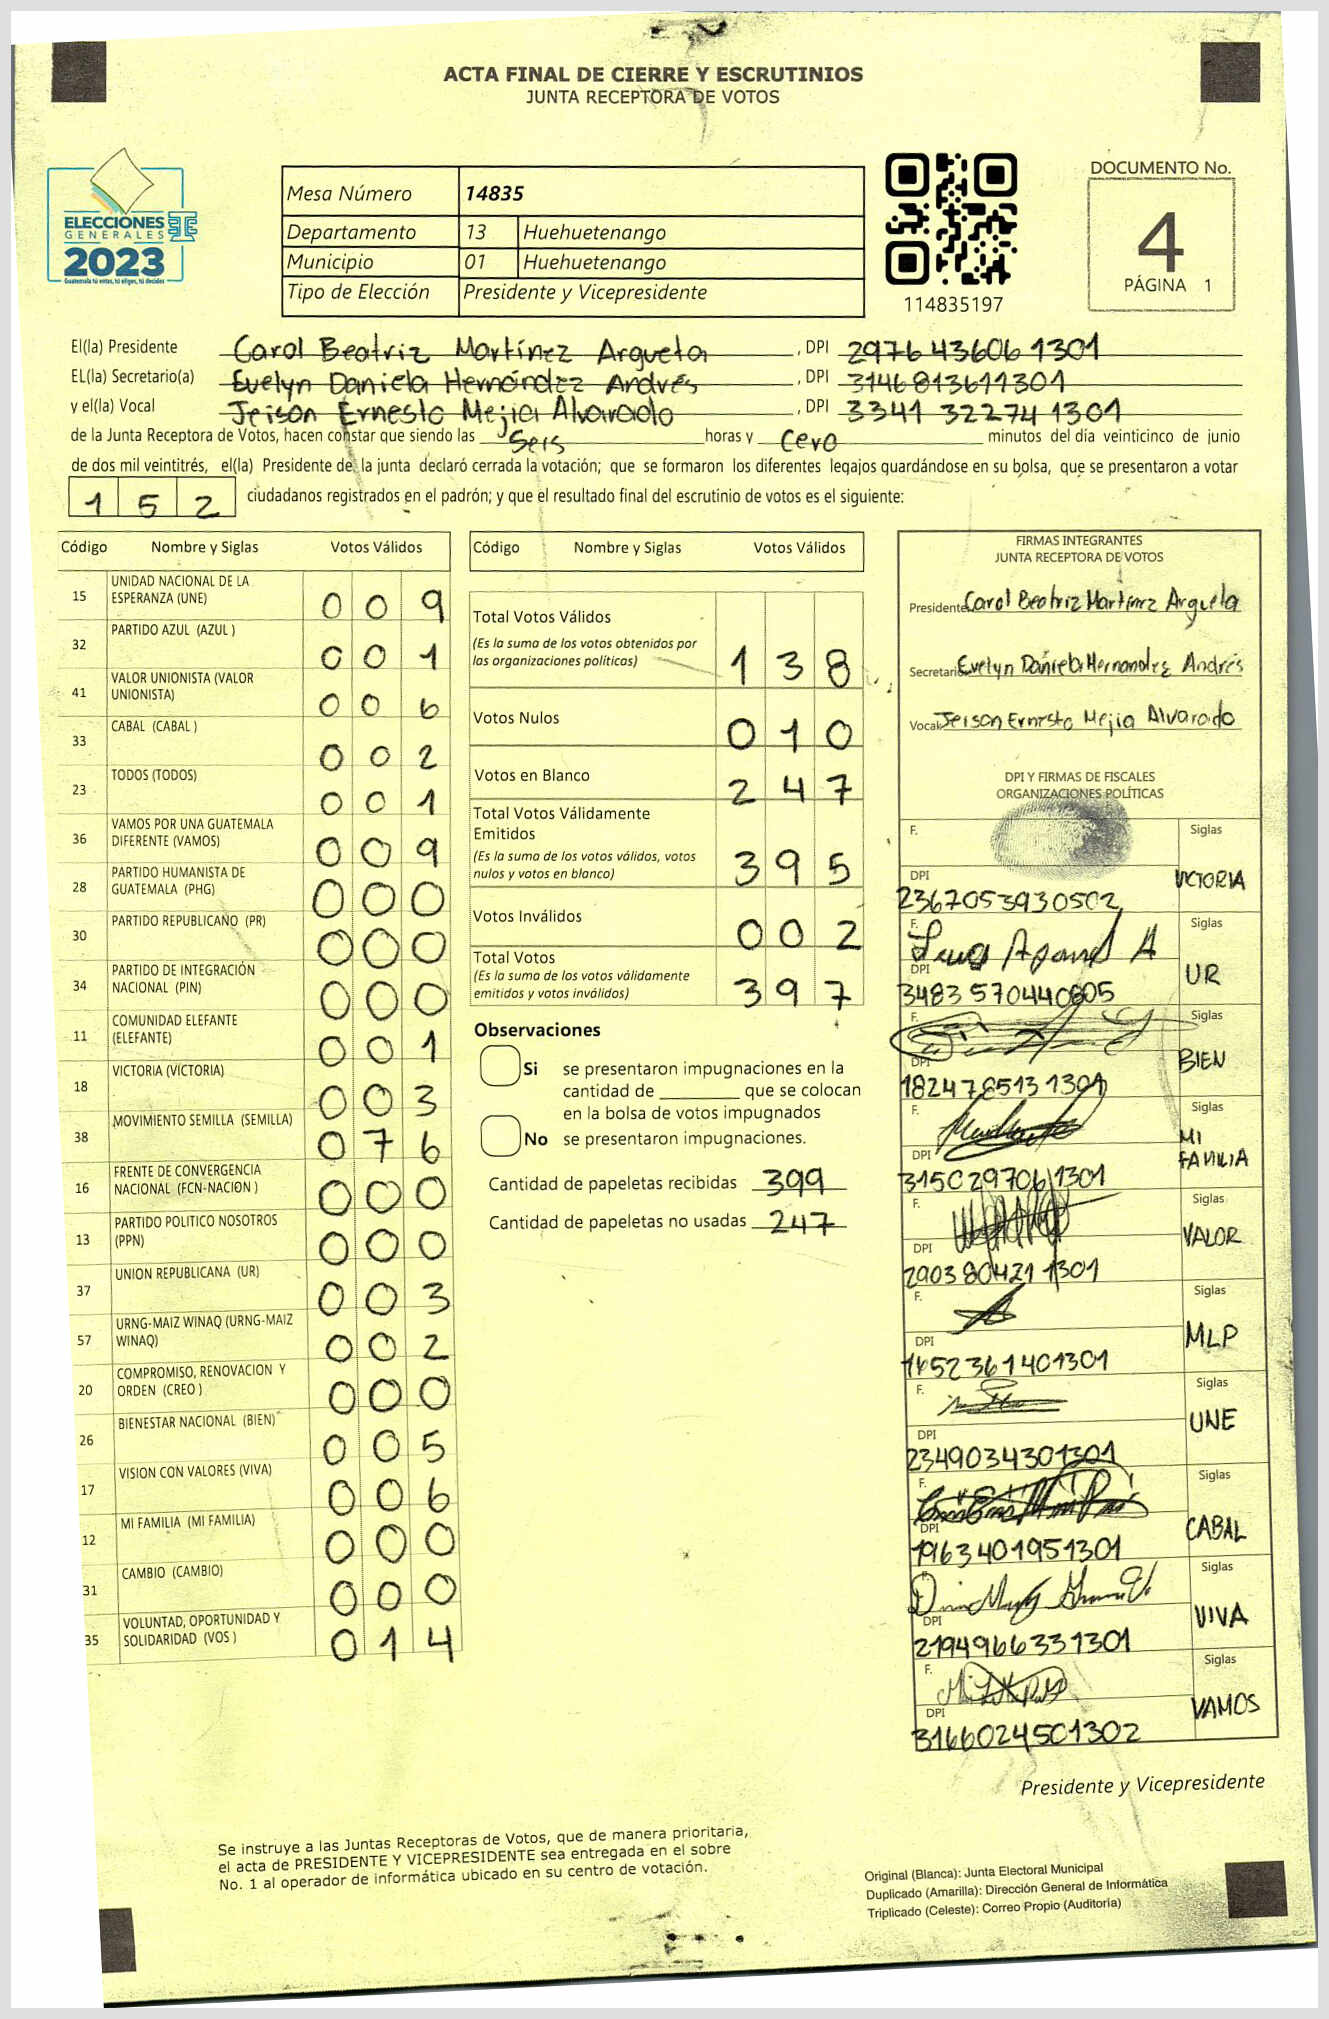 ACTA FINAL DE CIERRE Y ESCRUTINIOS
JUNTA RECEPTORA DE VOTOS
ELECCIONES
GENERALES
2023
Guatemala tú votas, tú eliges, tú decides
Mesa Número 14835
Departamento 13 Huehuetenango
Municipio 01 Huehuetenango
Tipo de Elección Presidente y Vicepresidente
114835197
DOCUMENTO No.
4
PÁGINA 1
El(la) Presidente Carol Beatriz Martínez Argueta , DPI 2976436061301
EL(la) Secretario(a) Evelyn Daniela Hernández Andrés , DPI 3146813611301
y el(la) Vocal Jeison Ernesto Mejia Alvarado , DPI 3341322741301
de la Junta Receptora de Votos, hacen constar que siendo las Seis horas y Cero minutos del día veinticinco de junio
de dos mil veintitrés, el(la) Presidente de la junta declaró cerrada la votación; que se formaron los diferentes legajos guardándose en su bolsa, que se presentaron a votar
152 ciudadanos registrados en el padrón; y que el resultado final del escrutinio de votos es el siguiente:
Código Nombre y Siglas Votos Válidos
15 UNIDAD NACIONAL DE LA ESPERANZA (UNE) 009
32 PARTIDO AZUL (AZUL ) 001
41 VALOR UNIONISTA (VALOR UNIONISTA) 006
33 CABAL (CABAL ) 002
23 TODOS (TODOS) 001
36 VAMOS POR UNA GUATEMALA DIFERENTE (VAMOS) 009
28 PARTIDO HUMANISTA DE GUATEMALA (PHG) 000
30 PARTIDO REPUBLICANO (PR) 000
34 PARTIDO DE INTEGRACIÓN NACIONAL (PIN) 000
11 COMUNIDAD ELEFANTE (ELEFANTE) 001
18 VICTORIA (VICTORIA) 003
38 MOVIMIENTO SEMILLA (SEMILLA) 076
16 FRENTE DE CONVERGENCIA NACIONAL (FCN-NACION ) 000
13 PARTIDO POLITICO NOSOTROS (PPN) 000
37 UNION REPUBLICANA (UR) 003
57 URNG-MAIZ WINAQ (URNG-MAIZ WINAQ) 002
20 COMPROMISO, RENOVACION Y ORDEN (CREO ) 000
26 BIENESTAR NACIONAL (BIEN) 005
17 VISION CON VALORES (VIVA) 006
12 MI FAMILIA (MI FAMILIA) 000
31 CAMBIO (CAMBIO) 000
35 VOLUNTAD, OPORTUNIDAD Y SOLIDARIDAD (VOS ) 014
Código Nombre y Siglas Votos Válidos
Total Votos Válidos 138
(Es la suma de los votos obtenidos por
las organizaciones políticas)
Votos Nulos 010
Votos en Blanco 247
Total Votos Válidamente
Emitidos 395
(Es la suma de los votos válidos, votos
nulos y votos en blanco)
Votos Inválidos 002
Total Votos 397
(Es la suma de los votos válidamente
emitidos y votos inválidos)
Observaciones
Si se presentaron impugnaciones en la
cantidad de ________ que se colocan
en la bolsa de votos impugnados
No se presentaron impugnaciones.
Cantidad de papeletas recibidas 399
Cantidad de papeletas no usadas 247
FIRMAS INTEGRANTES
JUNTA RECEPTORA DE VOTOS
Presidente Carol Beatriz Martínez Argueta
Secretari Evelyn Daniela Hernandez Andrés
Vocal Jeison Ernesto Mejia Alvarado
DPI Y FIRMAS DE FISCALES
ORGANIZACIONES POLÍTICAS
F. Siglas
DPI VICTORIA
2367053930502
F. Siglas
DPI UR
3483570440605
F. Siglas
DPI BIEN
1824785131301
F. Siglas
DPI MI FAMILIA
3150297061301
F. Siglas
DPI VALOR
2903804211301
F. Siglas
DPI MLP
F. Siglas
DPI UNE
2349034301301
F. Siglas
DPI CABAL
1963401951301
F. Siglas
DPI VIVA
2194966331301
F. Siglas
DPI VAMOS
3166024501302
Presidente y Vicepresidente
Se instruye a las Juntas Receptoras de Votos, que de manera prioritaria,
el acta de PRESIDENTE Y VICEPRESIDENTE sea entregada en el sobre
No. 1 al operador de informática ubicado en su centro de votación.
Original (Blanca): Junta Electoral Municipal
Duplicado (Amarilla): Dirección General de Informática
Triplicado (Celeste): Correo Propio (Auditoria)